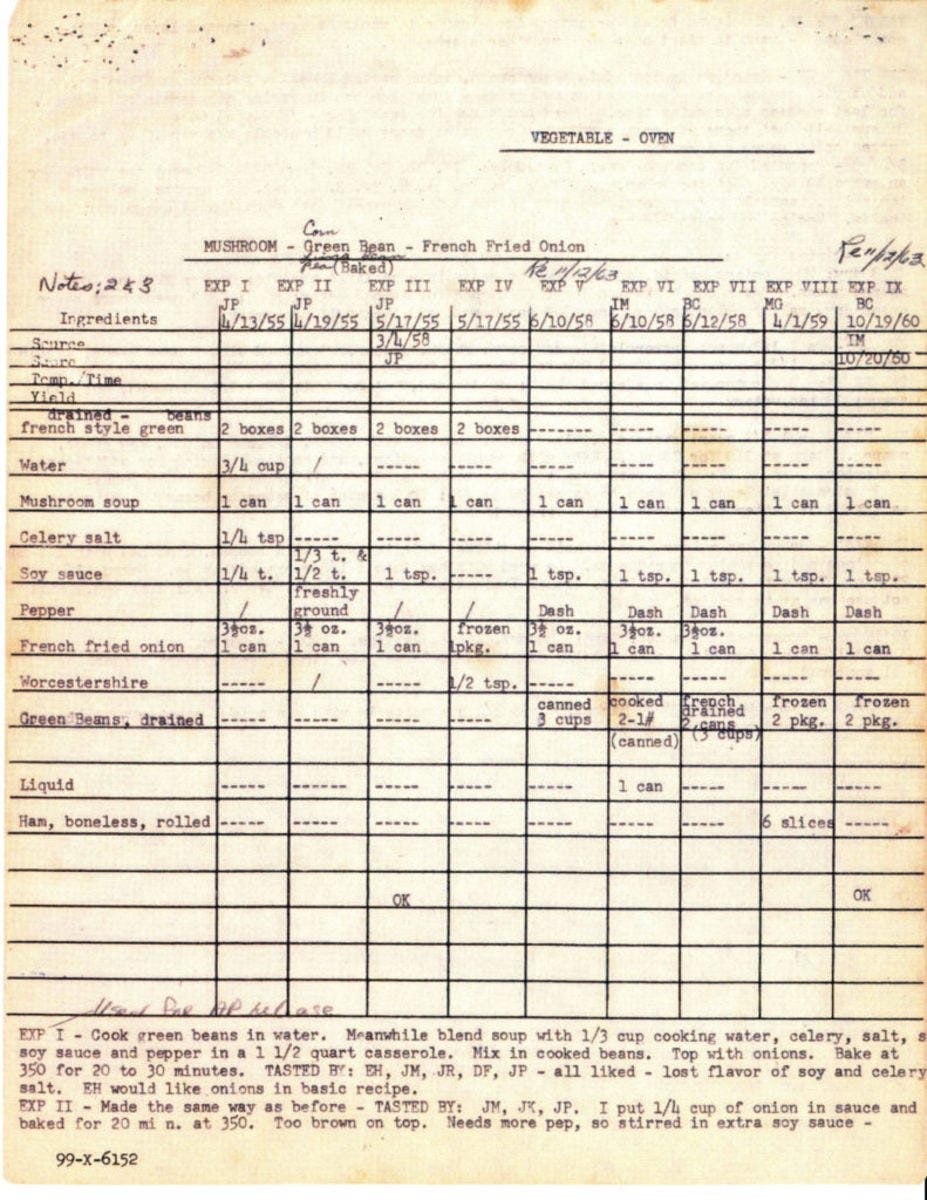 VEGETABLE - OVEN
Corn
MUSHROOM - Green Bean - French Fried Onion
Pea (Baked)
Re 11/12/63
Re 11/12/63
Notes: 2 & 3
EXP I EXP II EXP III EXP IV EXP V EXP VI EXP VII EXP VIII EXP IX
JP JP JP IM BC MG BC
Ingredients 4/13/55 4/19/55 5/17/55 5/17/55 6/10/58 6/10/58 6/12/58 4/1/59 10/19/60
Source 3/4/58 IM
Score JP 10/20/60
Temp./Time
Yield
drained - beans
french style green 2 boxes 2 boxes 2 boxes 2 boxes ------- ----- ----- ----- -----
Water 3/4 cup / ----- ----- ----- ----- ----- ----- -----
Mushroom soup 1 can 1 can 1 can 1 can 1 can 1 can 1 can 1 can 1 can
Celery salt 1/4 tsp ----- ----- ----- ----- ----- ----- ----- -----
1/3 t. &
Soy sauce 1/4 t. 1/2 t. 1 tsp. ----- 1 tsp. 1 tsp. 1 tsp. 1 tsp. 1 tsp.
freshly
Pepper / ground / / Dash Dash Dash Dash Dash
3½oz. 3½ oz. 3½oz. frozen 3½ oz. 3½oz. 3½oz.
French fried onion 1 can 1 can 1 can 1pkg. 1 can 1 can 1 can 1 can 1 can
Worcestershire ----- / ----- 1/2 tsp. ----- ----- ----- ----- -----
canned cooked french frozen frozen
Green Beans, drained ----- ----- ----- ----- 3 cups 2-1# drained 2 pkg. 2 pkg.
2 cans
(canned) (3 cups)
Liquid ----- ------ ----- ----- ----- 1 can ----- ----- -----
Ham, boneless, rolled ----- ----- ----- ----- ----- ----- ----- 6 slices -----
OK OK
Used for AP release
EXP I - Cook green beans in water. Meanwhile blend soup with 1/3 cup cooking water, celery, salt, s
soy sauce and pepper in a 1 1/2 quart casserole. Mix in cooked beans. Top with onions. Bake at
350 for 20 to 30 minutes. TASTED BY: EH, JM, JR, DF, JP - all liked - lost flavor of soy and celery
salt. EH would like onions in basic recipe.
EXP II - Made the same way as before - TASTED BY: JM, JK, JP. I put 1/4 cup of onion in sauce and
baked for 20 mi n. at 350. Too brown on top. Needs more pep, so stirred in extra soy sauce -
99-X-6152